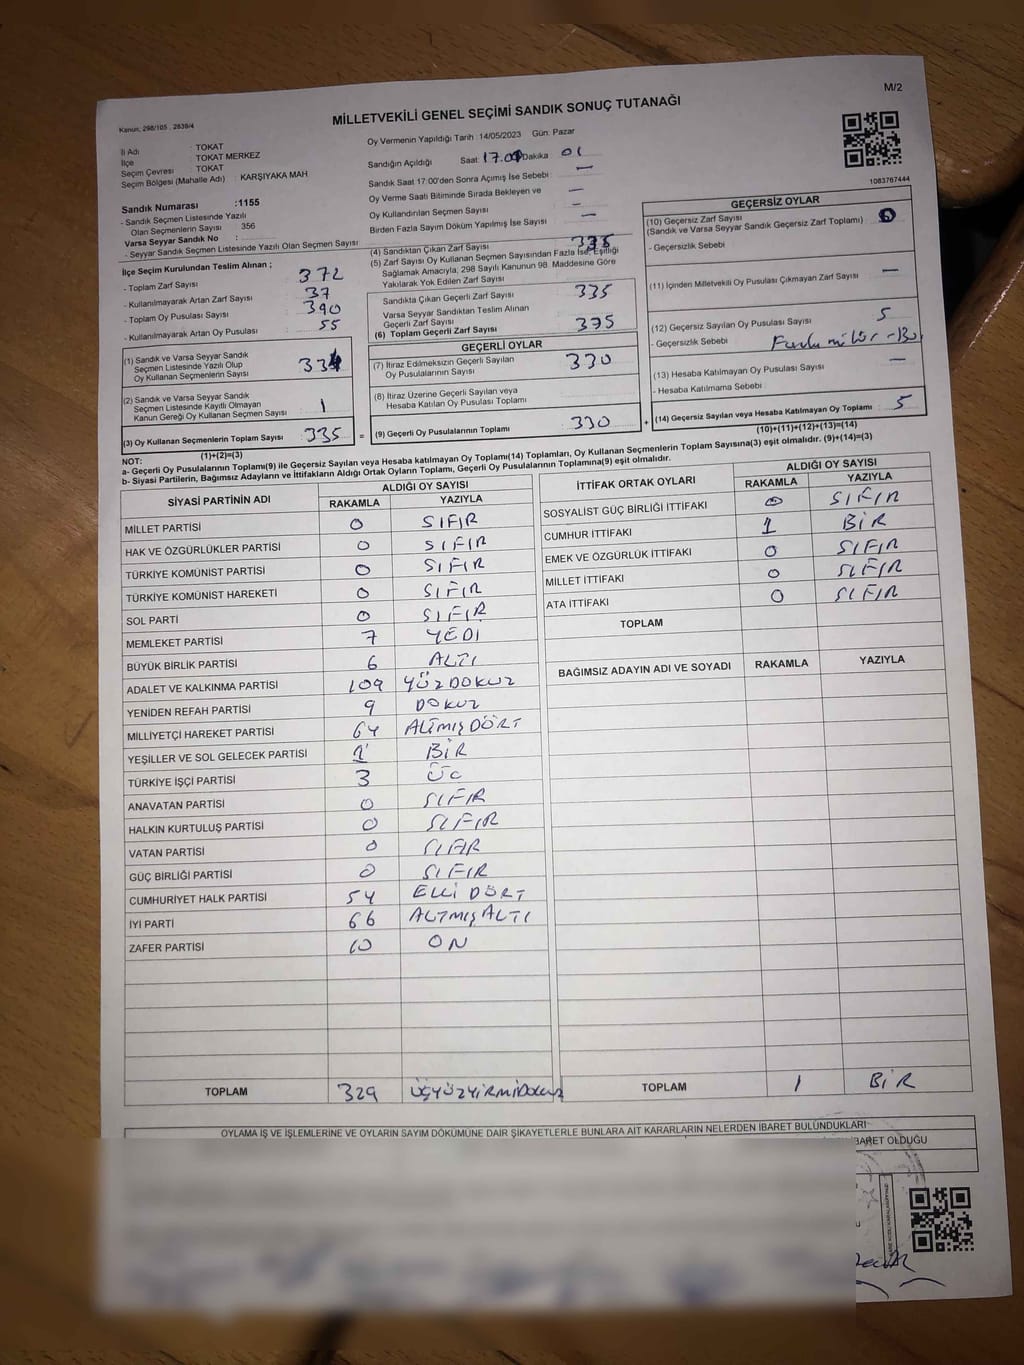 M/2
MİLLETVEKİLİ GENEL SEÇİMİ SANDIK SONUÇ TUTANAĞI
Kanun; 298/105 , 2839/4
Oy Vermenin Yapıldığı Tarih : 14/05/2023 Gün. Pazar
İl Adı : TOKAT
İlçe : TOKAT MERKEZ
Seçim Çevresi : TOKAT
Seçim Bölgesi (Mahalle Adı) : KARŞIYAKA MAH
Sandığın Açıldığı Saat: 17.0 Dakika 01
Sandık Saat 17:00'den Sonra Açımış İse Sebebi : —
Oy Verme Saati Bitiminde Sırada Bekleyen ve —
Oy Kullandırılan Seçmen Sayısı -
Birden Fazla Sayım Döküm Yapılmış İse Sayısı —
1083767444
Sandık Numarası :1155
- Sandık Seçmen Listesinde Yazılı
Olan Seçmenlerin Sayısı 356
Varsa Seyyar Sandık No :
- Seyyar Sandık Seçmen Listesinde Yazılı Olan Seçmen Sayısı
İlçe Seçim Kurulundan Teslim Alınan ;
- Toplam Zarf Sayısı 372
- Kullanılmayarak Artan Zarf Sayısı 37
- Toplam Oy Pusulası Sayısı 390
- Kullanılmayarak Artan Oy Pusulası 55
(1) Sandık ve Varsa Seyyar Sandık
Seçmen Listesinde Yazılı Olup
Oy Kullanan Seçmenlerin Sayısı 334
(2) Sandık ve Varsa Seyyar Sandık
Seçmen Listesinde Kayıtlı Olmayan
Kanun Gereği Oy Kullanan Seçmen Sayısı 1
(3) Oy Kullanan Seçmenlerin Toplam Sayısı 335 =
(1)+(2)=(3)
(4) Sandıktan Çıkan Zarf Sayısı 335
(5) Zarf Sayısı Oy Kullanan Seçmen Sayısından Fazla İse, Eşitliği
Sağlamak Amacıyla; 298 Sayılı Kanunun 98. Maddesine Göre
Yakılarak Yok Edilen Zarf Sayısı
Sandıkta Çıkan Geçerli Zarf Sayısı 335
Varsa Seyyar Sandıktan Teslim Alınan
Geçerli Zarf Sayısı
(6) Toplam Geçerli Zarf Sayısı 335
GEÇERLİ OYLAR
(7) İtiraz Edilmeksizin Geçerli Sayılan
Oy Pusulalarının Sayısı 330
(8) İtiraz Üzerine Geçerli Sayılan veya
Hesaba Katılan Oy Pusulası Toplamı
(9) Geçerli Oy Pusulalarının Toplamı 330 +
GEÇERSİZ OYLAR
(10) Geçersiz Zarf Sayısı 0
(Sandık ve Varsa Seyyar Sandık Geçersiz Zarf Toplamı)
- Geçersizlik Sebebi
(11) İçinden Milletvekili Oy Pusulası Çıkmayan Zarf Sayısı —
(12) Geçersiz Sayılan Oy Pusulası Sayısı 5
- Geçersizlik Sebebi
(13) Hesaba Katılmayan Oy Pusulası Sayısı —
- Hesaba Katılmama Sebebi :
(14) Geçersiz Sayılan veya Hesaba Katılmayan Oy Toplamı 5
(10)+(11)+(12)+(13)=(14)
NOT:
a- Geçerli Oy Pusulalarının Toplamı(9) ile Geçersiz Sayılan veya Hesaba katılmayan Oy Toplamı(14) Toplamları, Oy Kullanan Seçmenlerin Toplam Sayısına(3) eşit olmalıdır. (9)+(14)=(3)
b- Siyasi Partilerin, Bağımsız Adayların ve İttifakların Aldığı Ortak Oyların Toplamı, Geçerli Oy Pusulalarının Toplamına(9) eşit olmalıdır.
SİYASİ PARTİNİN ADI ALDIĞI OY SAYISI
RAKAMLA YAZIYLA
MİLLET PARTİSİ 0 SIFIR
HAK VE ÖZGÜRLÜKLER PARTİSİ 0 SIFIR
TÜRKİYE KOMÜNİST PARTİSİ 0 SIFIR
TÜRKİYE KOMÜNİST HAREKETİ 0 SIFIR
SOL PARTİ 0 SIFIR
MEMLEKET PARTİSİ 7 YEDİ
BÜYÜK BİRLİK PARTİSİ 6 ALTI
ADALET VE KALKINMA PARTİSİ 109 YÜZDOKUZ
YENİDEN REFAH PARTİSİ 9 DOKUZ
MİLLİYETÇİ HAREKET PARTİSİ 64 ALTMIŞDÖRT
YEŞİLLER VE SOL GELECEK PARTİSİ 1 BİR
TÜRKİYE İŞÇİ PARTİSİ 3 ÜÇ
ANAVATAN PARTİSİ 0 SIFIR
HALKIN KURTULUŞ PARTİSİ 0 SIFIR
VATAN PARTİSİ 0 SIFIR
GÜÇ BİRLİĞİ PARTİSİ 0 SIFIR
CUMHURİYET HALK PARTİSİ 54 ELLİ DÖRT
İYİ PARTİ 66 ALTMIŞALTI
ZAFER PARTİSİ 10 ON
TOPLAM 329 ÜÇYÜZYİRMİDOKUZ
İTTİFAK ORTAK OYLARI ALDIĞI OY SAYISI
RAKAMLA YAZIYLA
SOSYALİST GÜÇ BİRLİĞİ İTTİFAKI 0 SIFIR
CUMHUR İTTİFAKI 1 BİR
EMEK VE ÖZGÜRLÜK İTTİFAKI 0 SIFIR
MİLLET İTTİFAKI 0 SIFIR
ATA İTTİFAKI 0 SIFIR
TOPLAM
BAĞIMSIZ ADAYIN ADI VE SOYADI RAKAMLA YAZIYLA
TOPLAM 1 BİR
OYLAMA İŞ VE İŞLEMLERİNE VE OYLARIN SAYIM DÖKÜMÜNE DAİR ŞİKAYETLERLE BUNLARA AİT KARARLARIN NELERDEN İBARET BULUNDUKLARI
İBARET OLDUĞU